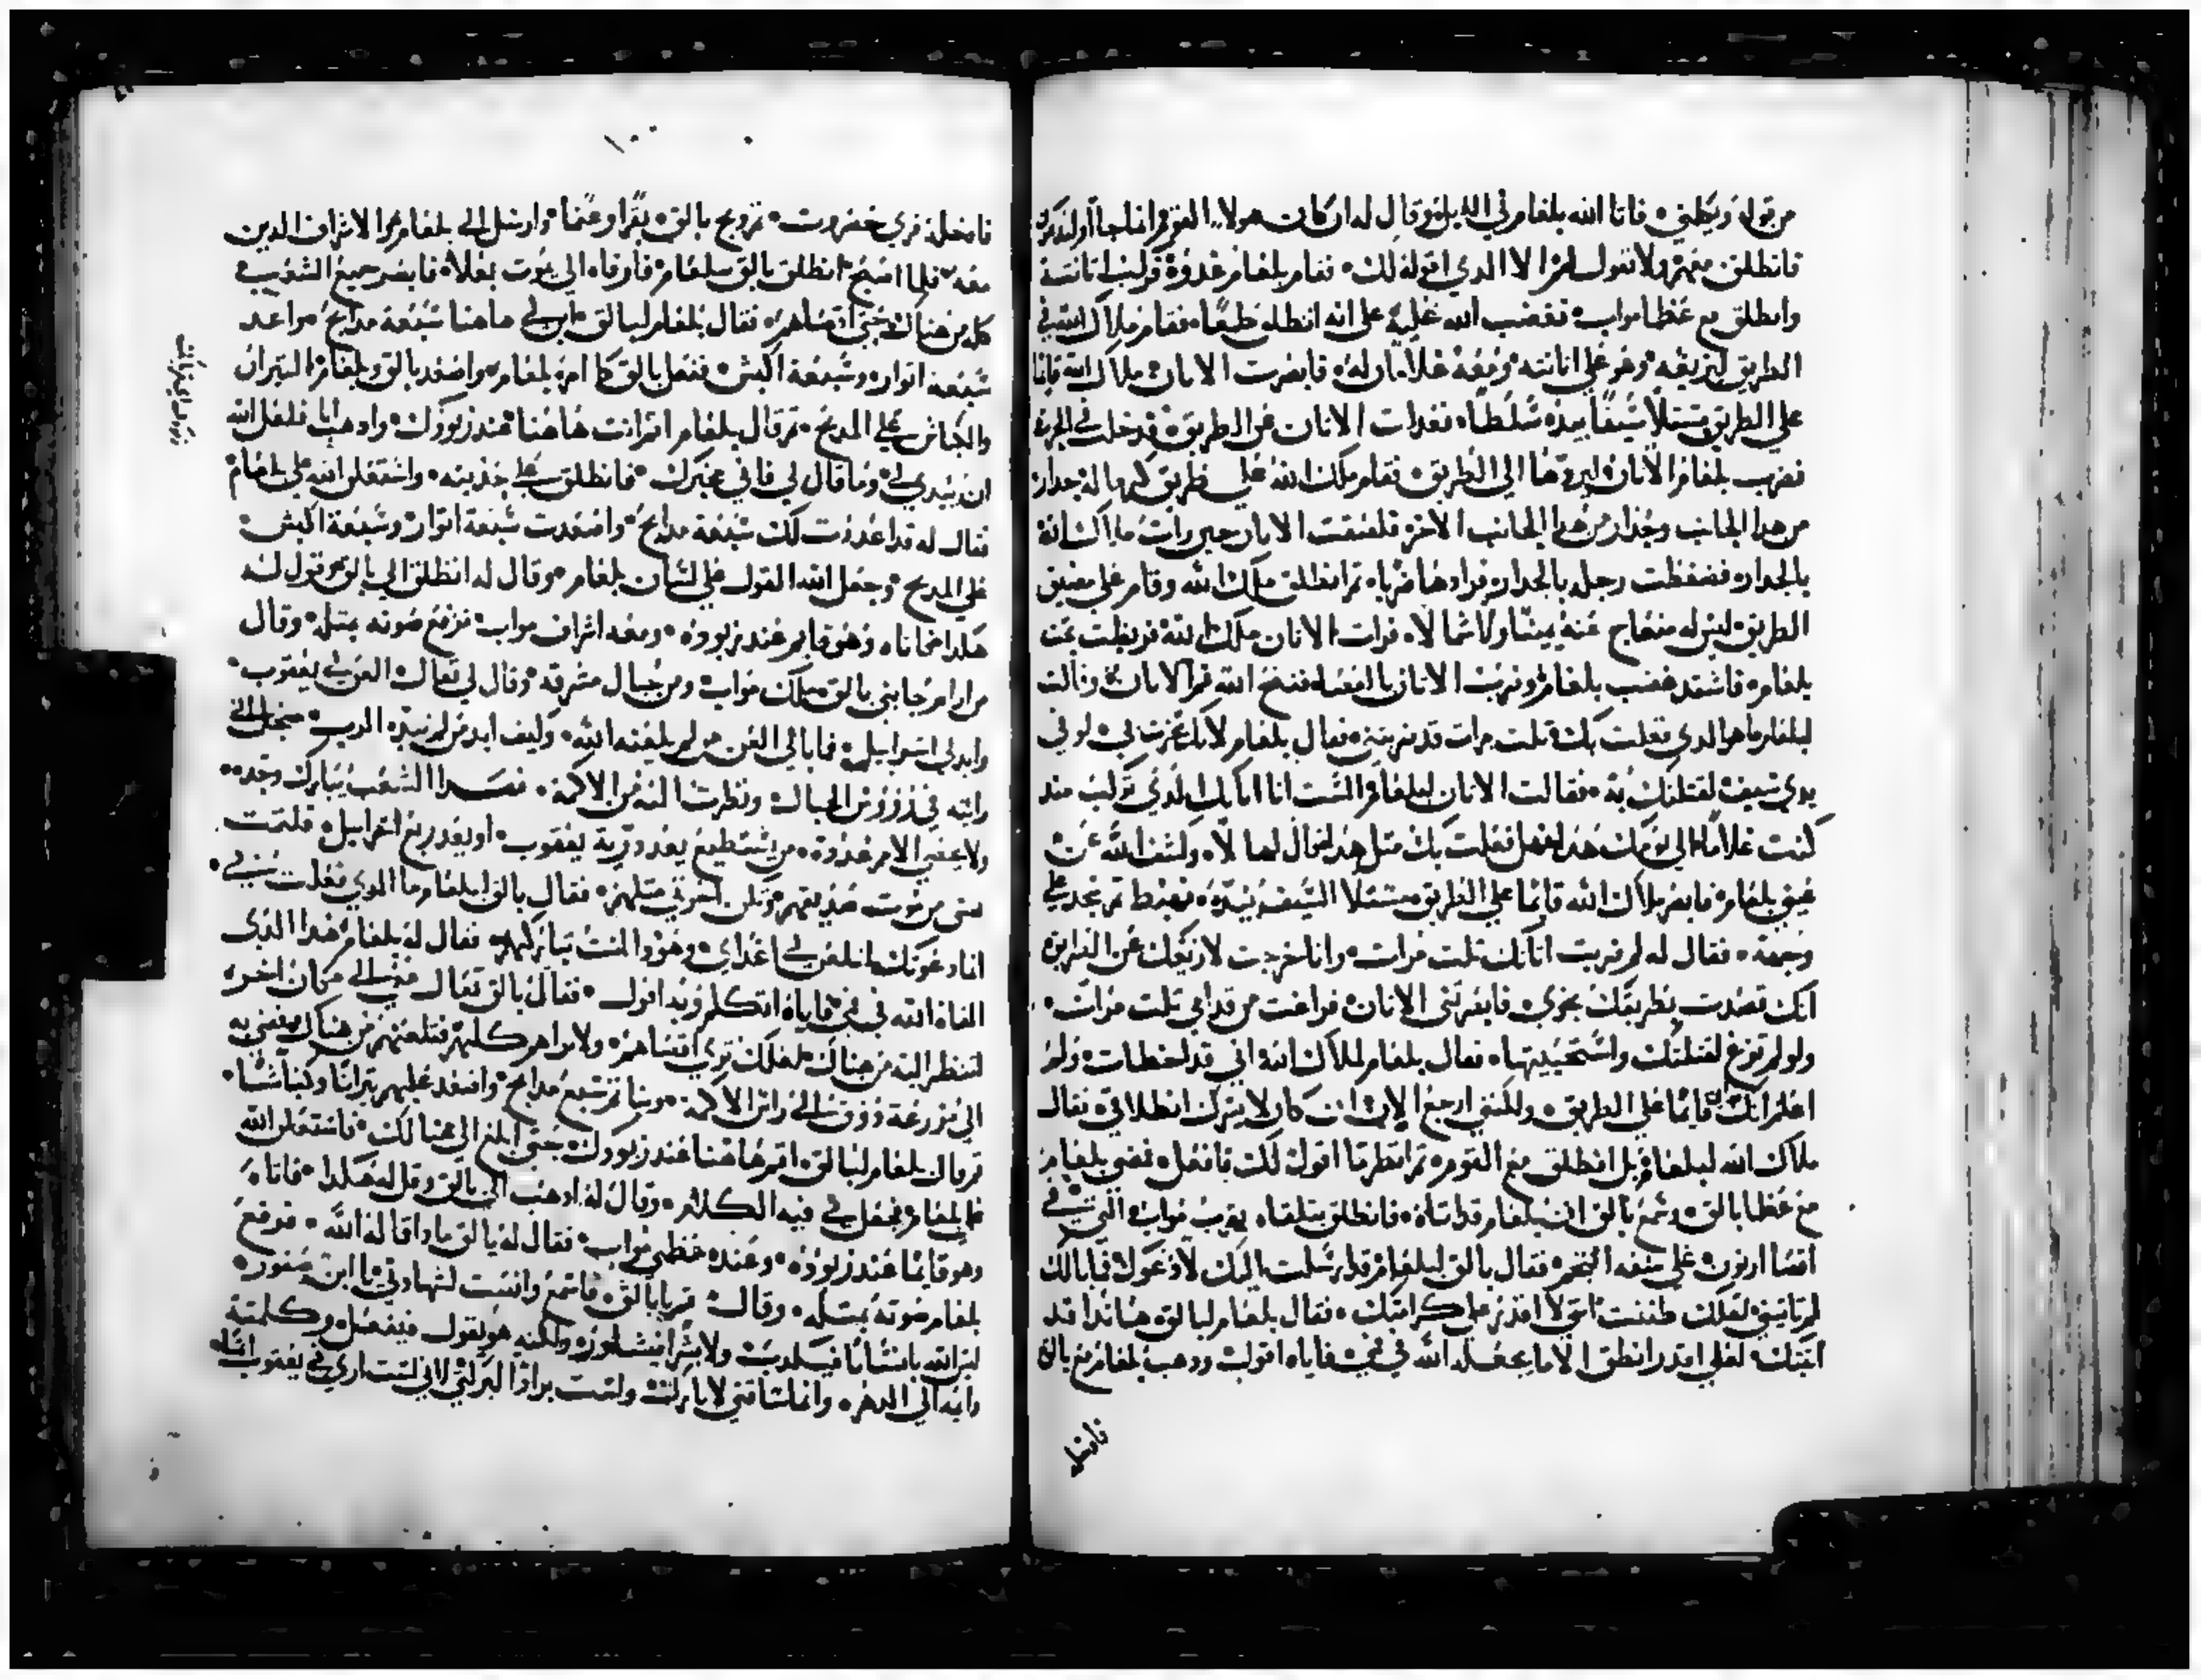 فاتا الله بلعام في الليل وقال له ان كان هولاء القوم انما جاوا
فانطلق معهم ولا تقول لهم الا الدي اقوله لك فقام بلعام غدوة فركب اتانه
وانطلق مع عظما مواب فغضب الله عليه على انه انطلق فقام ملاك الله في
الطريق وهو على اتانته ومعه غلامان له فابصرت الاتان ملاك الله قايما
على الطريق مستلا سيفا بيده فعدلت الاتان عن الطريق
فضرب بلعام الاتان ليردها الى الطريق فقام ملك الله على طريق
من هدا الجانب وجدار من هدا الجانب الاخر فلصقت الاتان حين رات ملاك الله
بالجدار فضغطت رجله بالجدار فزادها ضربا ثم انطلق ملاك الله وقام على مضيق
الطريق ليس له منعاج عنه يمينا ولا شمالا فرات الاتان ملك الله فربضت تحت
بلعام فاشتد غضب بلعام وضرب الاتان بالعصا ففتح الله فم الاتان وقالت
لبلعام ما هو الدي فعلت بك تلت مرات قد ضربتني فقال بلعام لانك لو في
يدي سيف لقتلتك به فقالت الاتان لبلعام الست انا اتانك الدي تركب مند
كنت غلاما الى يومك هدا هل فعلت بك متل هدا فقال لها لا وكشف الله عن
عيني بلعام فابصر ملاك الله قايما على الطريق مستلا السيف بيده فهبط ثم سجد على
وجهه فقال له لم ضربت اتانك تلت مرات وانا خرجت
انك قصدت بطريقك نحوي فابصرتني الاتان فراغت من قدامي تلت مرات
ولو لم تزغ لقتلتك واستحييتها فقال بلعام لملاك الله اني قد اخطات ولم
اعلم انك قايما على الطريق ولكنني ارجع الان ان كان لا يسرك انطلاقي فقال
ملاك الله لبلعام بل انطلق مع القوم ثم انظر ما اقول لك فافعل فمضى بلعام
مع عظما بالق وسمع بالق ان بلعام قد اتاه فانطلق يتلقاه بقرب مواب التي في
اقصا ارنون فقال بالق لبلعام قد ارسلت اليك لادعوك فما بالك
لم تاتيني لعلك ظننت اني لا اقدر على كرامتك فقال بلعام لبالق هاندا قد
اتيتك لعلي اقدر انطق الا ما يجعله الله في فمي فاياه اقول ودهب بلعام مع بالق
فادخله
١٠٠
فادخله قرى حضروت ودبح بالق بقرا وغنما وارسل الى بلعام والاشراف الدين
معه فلما اصبح انطلق بالق ببلعام فارقاه الى بيوت بعلاه فابصر جميع الشعب
فقال بلعام لبالق ابن لي هاهنا سبعة مدابح واعد
سبعة اتوار وسبعة اكبش ففعل بالق كما امره بلعام واصعد بالق وبلعام التيران
والكباش على المدبح ثم قال بلعام اتم انت هاهنا عند زبودك وادهب انا فلعل الله
ان يبدي لي وما قال لي فاني مخبرك فانطلق على جدبته واستعلن الله على بلعام
فقال له قد اعددت لك سبعة مدابح واصعدت سبعة اتوار وسبعة اكبش
على المدبح وجعل الله القول على لسان بلعام وقال له انطلق الى بالق وقول له
هكدا فاتاه وهو قايم عند زبوده ومعه اشراف مواب فرفع صوته بمتله وقال
من ارام جابني بالق ملك مواب ومن جبال مشرقه وقال لي تعال العن لي يعقوب
وابد لي اسراييل فما بالي العن من لم يلعنه الله وكيف ابد من لم يبده الرب
رايته في دروس الجبال ونظرت اليه من الاكمة الشعب يبارك وحده
من يستطيع يعد درية يعقوب او يعد ربع اسراييل فلتمت
نفسي من موت متلهم فقال بالق لبلعام ما الدي فعلت بي
انما دعوتك لتلعن لي اعداي وهودا انت تباركهم فقال له بلعام هدا الدي
القاه الله في فمي فاياه اتكلم وبه اقول فقال بالق تعال معي الى مكان اخر
لتنظر اليه من هناك لعلك ترى اقصاهم ولا تراهم كلهم فتلعنهم من هناك فمضى به
الى مزرعة الى راس الاكمة وبنا تم سبع مدابح واصعد عليهم تيرانا وكباشا
تم قال بلعام لبالق اقم هاهنا عند زبودك حتى ابلغ الى هنالك فاستعلن الله
على بلعام وجعل في فيه الكلام وقال له ادهب الى بالق وقل له هكدا فاتاه
وهو قايما عند زبوده وعنده عظما مواب فقال له بالق مادا قال له الله فرفع
بلعام صوته بمتله وقال قم يا بالق فاسمع وانصت لشهادتي يا ابن صفور
ليس الله بانسانا فيكدب ولكنه هو يقول فيفعل وكلمته
دايمه الى الدهر وانما ساقني لابارك ولست براد البركة لاني لست ارى في يعقوب اتما